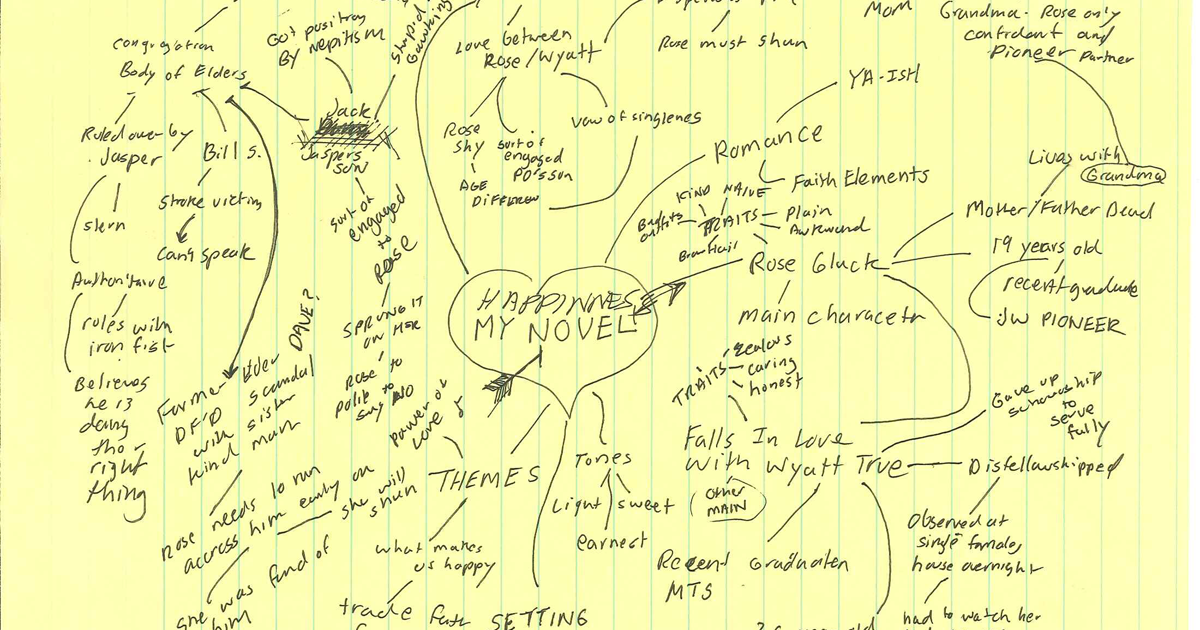 congregation
Body of Elders
Ruled over by
Jasper
stern
Authoritative
rules with
iron fist
Believes
he is
doing
the
right
thing
Bill S.
Stroke victim
Can't speak
Got position
BY Nepitism
stupid
Jack
Jaspers
son
sort of
engaged
to
ROSE
SPRUNG IT
ON HER
Rose to
polite to
say NO
Former Elder
DAVE?
DF'D scandal
with sister
kind man
Rose needs to run
across him early on
she will
shun
she was fond of
him
Love between
Rose/Wyatt
Rose
shy
AGE
DIFFEREN
sort of
engaged
PO's son
Vow of singlenes
Rose must shun
Mom
Grandma - Rose only
confidant and
Pioneer Partner
YA-ISH
Romance
Faith Elements
KIND NAIVE
Bad outfits
TRAITS
Plain
Awkward
Brown Hair
Rose Gluck
main characetr
Lives with
Grandma
Mother/Father Dead
19 years old
recent graduate
JW PIONEER
HAPPINNES
MY NOVEL
THEMES
power of
Love
what makes
us happy
trade
SETTING
Tones
Light
sweet
earnest
TRAITS
zealous
caring
honest
Falls In Love
with Wyatt True
other
MAIN
Recent Graduaten
MTS
Gave up
scholarship
to
serve
fully
Disfellowshipped
Observed at
single females
house overnight
had to watch her